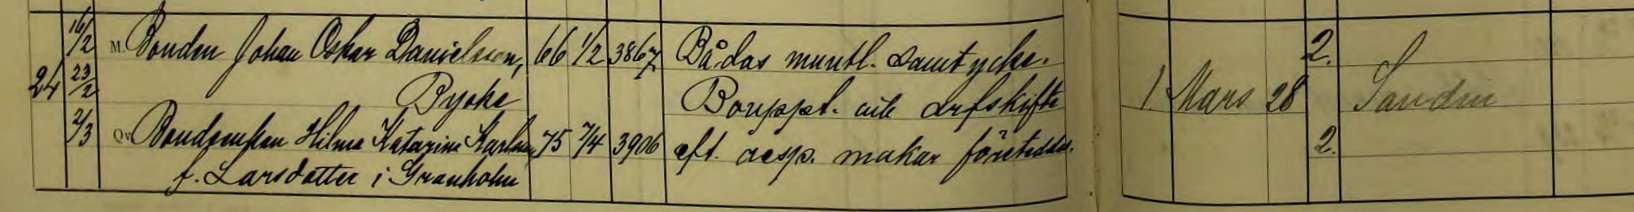 16/2 M. Bonden Johan Oskar Danielsson, 66 1/2 3867 Bådas muntl. samtycke. 2.
24 23/2 Ryoke Bouppt. och arfskifte 1 Mars 28 Sandin
2/3 Qv. Bondeenkan Hilma Katarina Karlsson 75 7/4 3906 eft. resp. makar företeddes. 2.
f. Larsdotter i Granholm